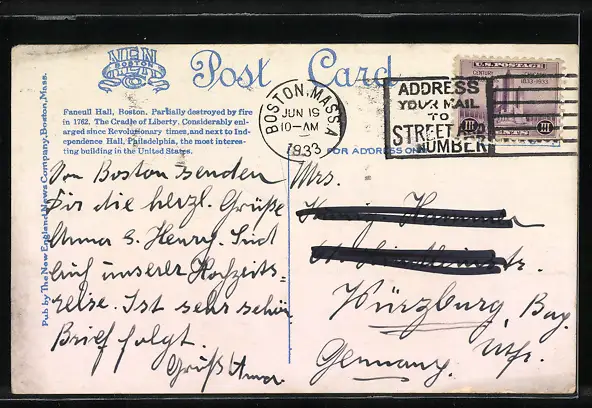 NEN
BOSTON
Post Card
U.S. POSTAGE
CENTURY
1833-1933
III CENTS III
BOSTON, MASS. A
JUN 19
10-AM
1933
ADDRESS
YOUR MAIL
TO
STREET AND
NUMBER
Faneuil Hall, Boston. Partially destroyed by fire
in 1762. The Cradle of Liberty. Considerably enl-
arged since Revolutionary times, and next to Ind-
ependence Hall, Philadelphia, the most interes-
ting building in the United States.
FOR ADDRESS ON
Pub by The New England News Company, Boston, Mass.
Von Boston senden
Dir die herzl. Grüße
Anna & Henry. Sind
auf unserer Hochzeits=
reise. Ist sehr schön
Brief folgt.
Gruß Anna
Mrs.
Würzburg, Bay.
Germany. Ufr.